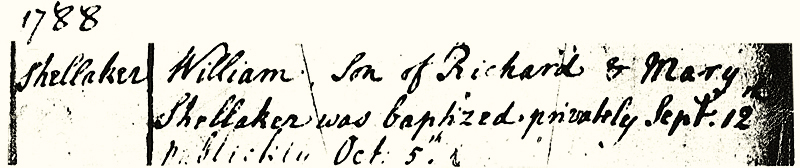 1788
Shellaker William, Son of Richard & Mary
Shellaker was baptized privately Sept. 12th
publickly Oct. 5th